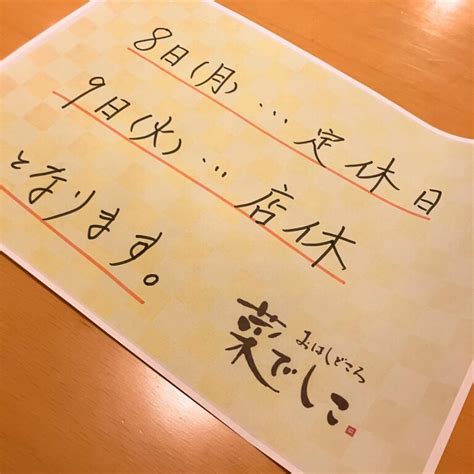 8日(月)…定休日
9日(火)…店休
となります。
おはしどころ
菜でしこ